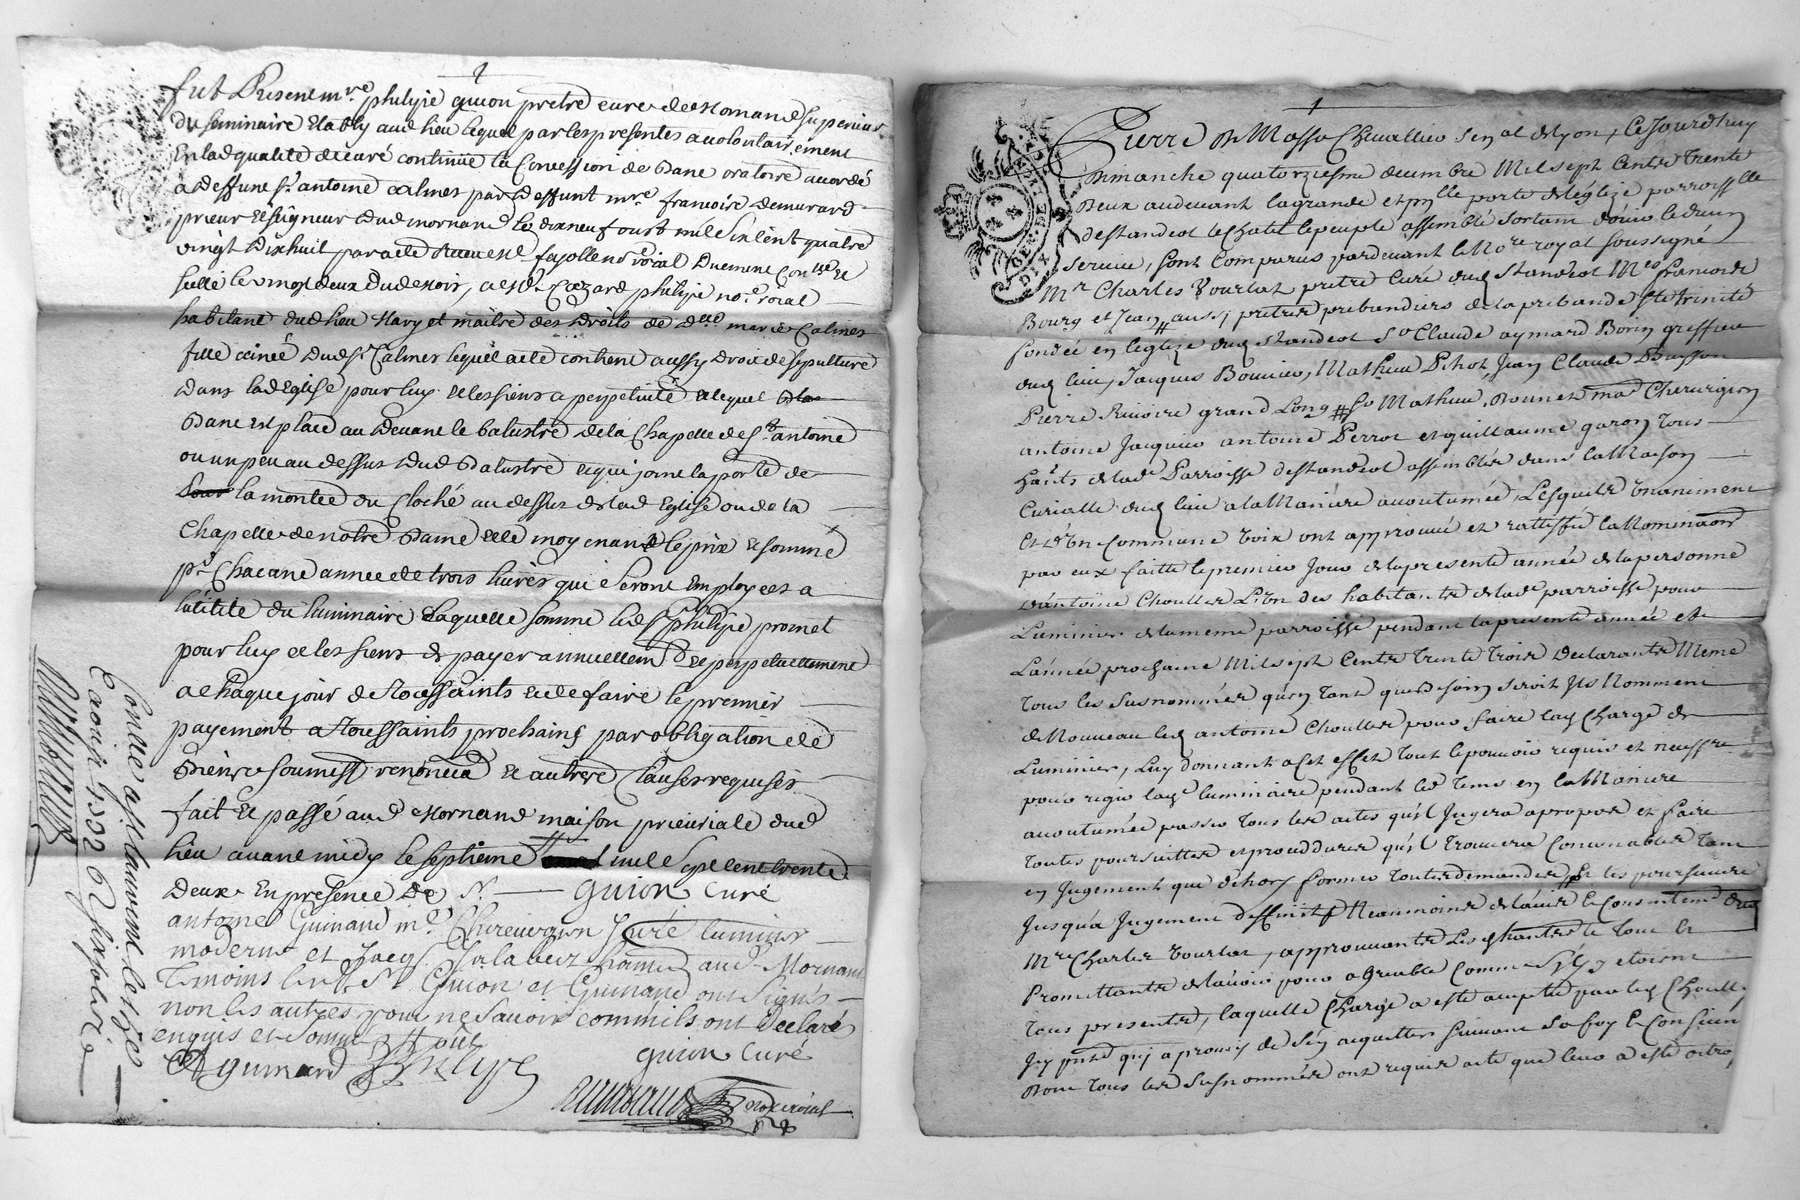 fut Présent mre philipe guion pretre curé de Mornand superieur
du seminaire Etably aud lieu lequel par les presentes a volontairement
En lad qualité de curé continüé la Concession de Banc oratoire accordé
a deffunt sr. antoine calmes par deffunt mre. françois demurard
prieur et seigneur dud mornand le dix neuf oust mil six cent quatre
vingt Dix huit par acte Receu fayolle no royal Duement
scellé le vingt deux dud mois, a Sr Cazard philipe no.re roial
habitant dud lieu Mary et maître des droits de Dlle marie Calmes
fille ainée dud sr. Calmes lequel acte contient aussy droit de sepulture
dans lad Eglise pour luy et les siens a perpetuité et lequel
Banc est placé au devant le balustre de la Chapelle de St. antoine
ou un peu au dessus dud Balustre et qui joint la porte de
la montée du Cloché au dessus de lad Eglise ou de la
Chapelle de notre Dame et ce moyenand le prix et somme
pr. Chacune année de trois livres qui seront Employées a
lutilité du luminaire Laquelle somme led sr philipe promet
pour luy et les siens de payer annuellemt et perpetuellement
a chaque jour de Toussaints et de faire le premier
payement a Toussaints prochains par obligation de
Biens soumiss renonciaon et autres Clauses requises
fait et passé aud Mornand maison prieuriale dud
lieu avant midy le septieme mil sept cent trente
Deux En presence de Sr. guion Curé
antoine Guinand me. Chireurgien Juré luminier
moderne et Jacq. aud Mornand
Temoins led Sr. Guion et Guinand ont signés
non les autres pour ne savoir comm'ils ont declaré
enquis et sommé
A guinand philipe guion curé
notre roial
Controllé a st laurent le
1732
Pierre De Masso Chevallier Senal de lyon, Cejourdhuy
Dimanche quatorziesme decembre Mil sept Cents Trente
Deux audevant la grande et plle porte de léglize parroisslle
destandeot le Chatel le peuple assemblé sortant douir le divin
service, sont Comparus pardevant le No.re royal soussigné
Mr Charles Tourlat pretre Curé dud Standeot Mes francois
Bourg et Jean aussi pretres prebandiers de la prebande Ste trinité
fondée en léglize dud Standeot Sr Claude aymard Borin greffier
dud lieu, Jacques Bouvier, Mathieu Pihot Jean Claude Buisson
Pierre Rivoire grand Long Sr Mathieu Bonnet me Chirurgien
antoine Jacquier antoine Perrot et guillaume garon Tous
hants de lade Parroisse destandeot assemblés dans la Maison
Curialle dud lieu a la Manière accoutumée, Lesquels Unaniment
Et d'Un Commune Voix ont approuvé et rattiffié la Nominaon
par eux faitte le premier Jour de la presente année de la personne
d'antoine Choulles L'Un des habitants de lade parroisse pour
Luminier de la meme parroisse pendant la presente année et
L'année prochaine Mil sept Cents Trente Trois Declarants Meme
Tous les susnommés qu'en Tant que de soin seroit Ils Nomment
de Nouveau led antoine Choulles pour faire lad Charge de
Luminier, Luy donnant a cet effet Tout le pouvoir requis et necessre
pour régir lad luminaire pendant led Tems en la Maniere
accoutumée passer Tous les actes qu'il Jugera a propos et faire
Toutes poursuittes et procedures qu'il Trouvera Convenables Tant
en Jugement que déhors former Touttes demandes et les poursuivre
Jusqu'a Jugement deffinitif Neanmoins de lavis et Consentemt dud
Mre Charles Tourlat, approuvants Les
Promettants de lavoir pour agréable Comme sils etoient
Tous presents, laquelle Charge a esté acceptée par led Choulles
Icy prnt qui a promis de s'en acquitter suivant sa foy et Consience
Dont Tous les susnommés ont requis acte que leur a esté octroyé
GEN DE LYON
DIX